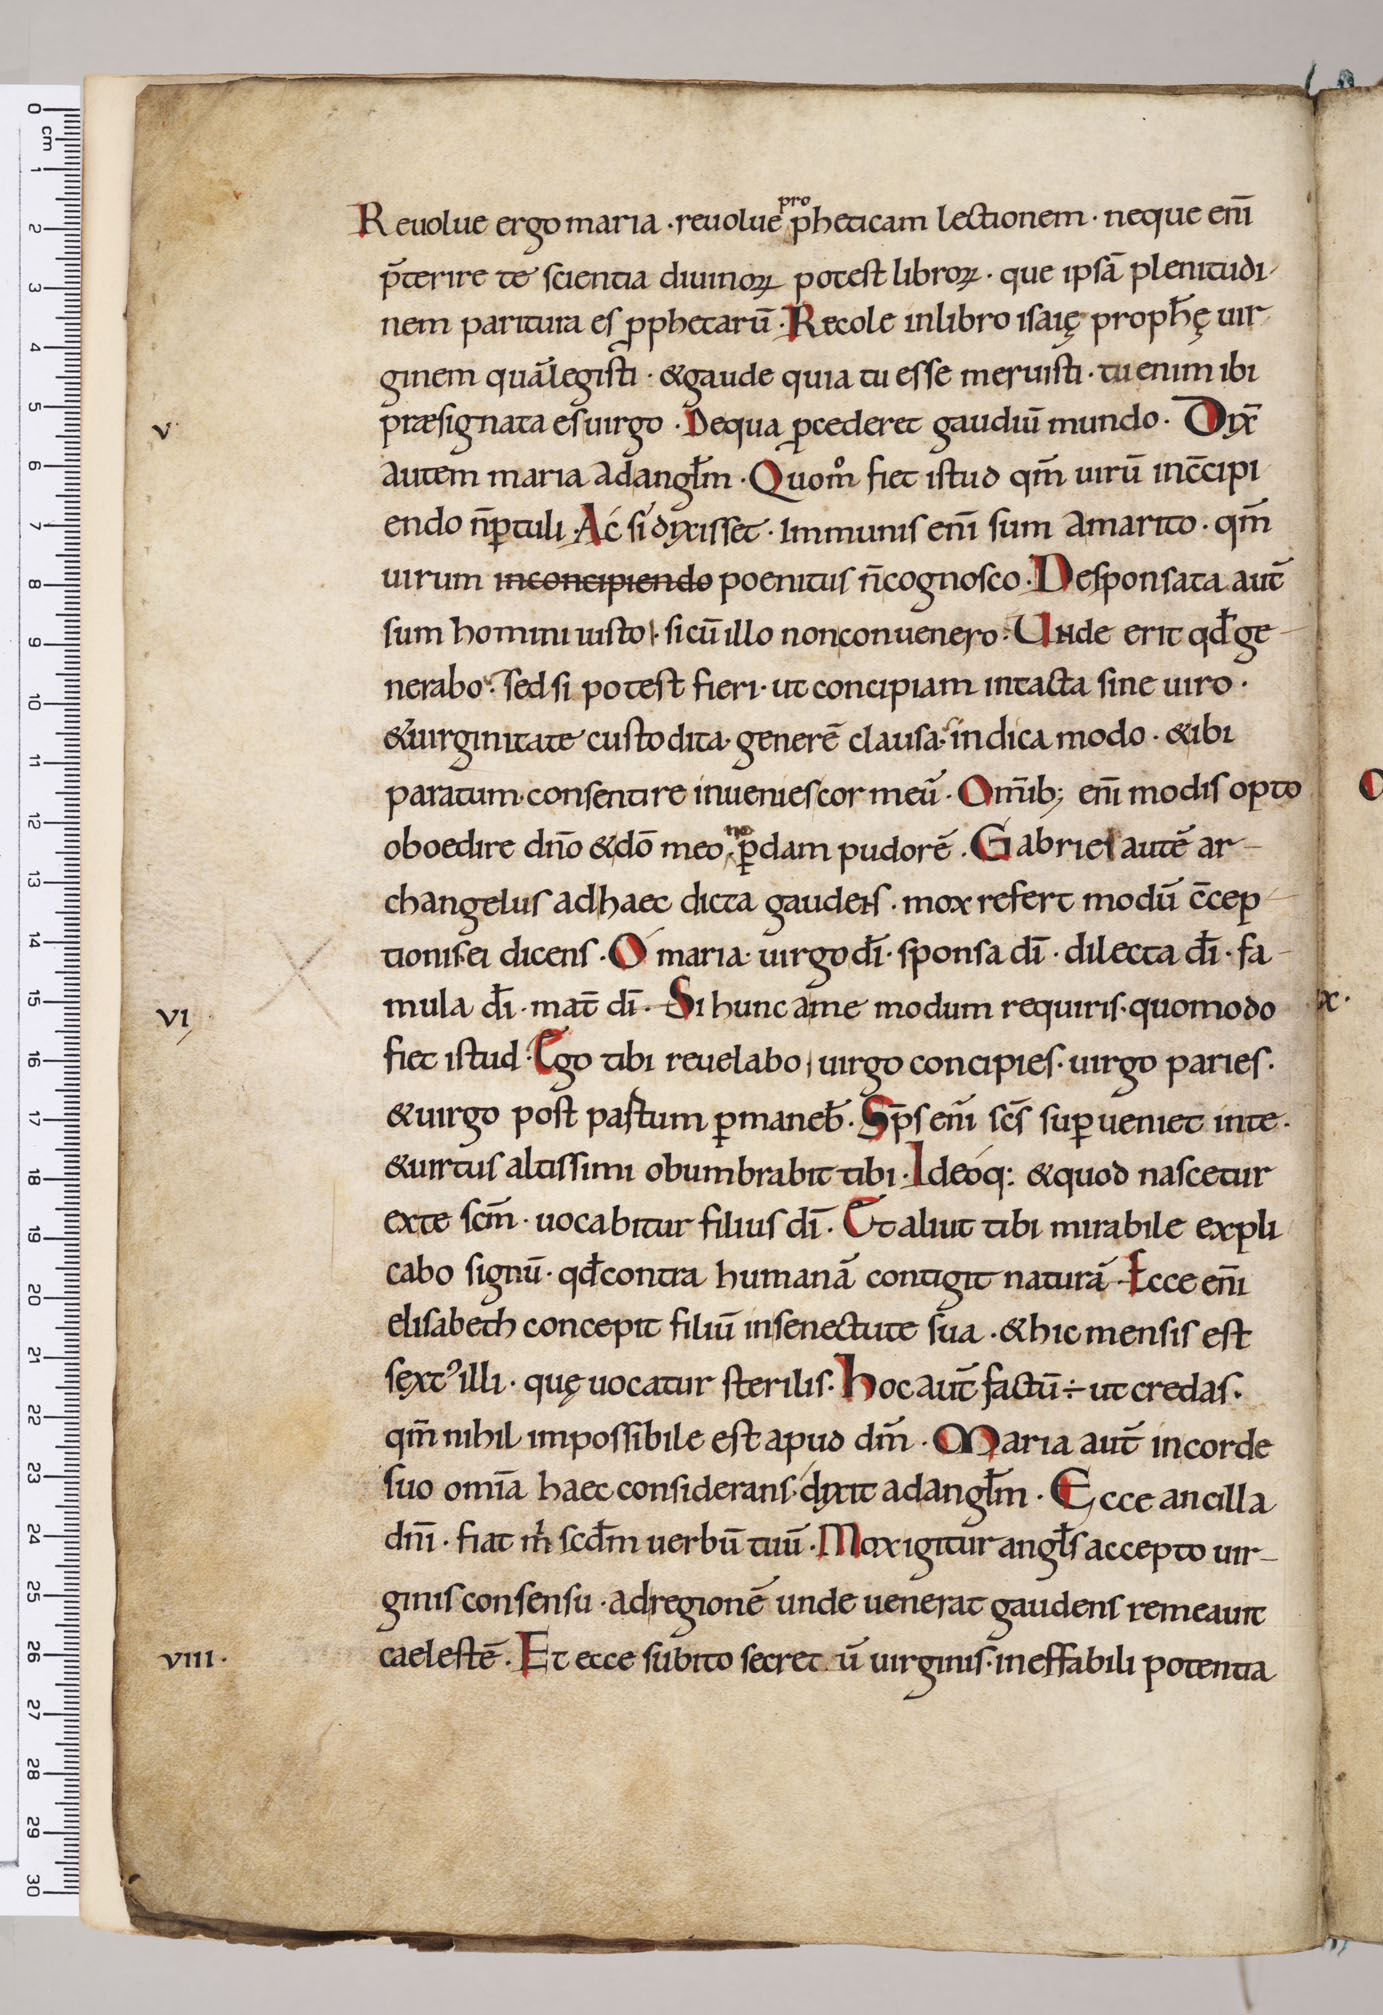 Reuolue ergo maria · reuolue propheticam lectionem · neque enī
p̄terire te scientia diuinoꝝ potest libroꝝ · que ipsā plenitudi-
nem paritura es ꝓphetarū · Recole inlibro isaię proph̄ę uir
ginem quālegisti · &gaude quia tu esse meruisti · tu enim ibi
v præsignata esuirgo · Dequa ꝓcederet gaudiū mundo · Dix̄
autem maria adangl̄m · Quom̊ fiet istud qm̄ uirū inc̄cipi
endo n̄ꝑtuli · Ac si dixisset · Immunis enī sum amarito · qm̄
uirum inconcipiendo poenitus n̄cognosco · Desponsata aut̄
sum homini iusto · si cū illo nonconuenero · Unde erit qd̄ ge-
nerabo · sed si potest fieri · ut concipiam intacta sine uiro ·
&uirginitate custodita · generē clausa · indica modo · &ibi
paratum · consentire inueniescor meū · Om̄ib; enī modis opto
oboedire dn̄o &dō meo · no ꝑdam pudorē · Gabriel autē ar-
changelus adhaec dicta gaudens · mox refert modū c̄cep-
tionis · ei dicens · O maria · uirgo dī · sponsa dī · dilecta dī · fa-
vi mula dī · mat̄ dī · Si hunc ame modum requiris · quomodo
fiet istud · Ego tibi reuelabo · uirgo concipies · uirgo paries ·
&uirgo post partum ꝑmaneb̄ · Sp̄s enī sc̄s suꝑueniet inte ·
&uirtus altissimi obumbrabit tibi · Ideoq: &quod nascetur
exte sc̄m · uocabitur filius dī · Et aliut tibi mirabile expli
cabo signū · qd̄contra humanā contigit naturā · Ecce enī
elisabeth concepit filiū insenectute sua · &hic mensis est
sęxt᾽ illi · quę uocatur sterilis · hoc aut̄ factū ÷ ut credas ·
qm̄ nihil impossibile est apud dm̄ · Maria aut̄ incorde
suo om̄ia haec considerans · dixit adangl̄m · Ecce ancilla
dn̄i · fiat m̍ scd̄m uerbū tuū · Mox igitur angl̄s accepto uir-
ginis consensu · adregionē unde uenerat gaudens remeauit
viii · caelestē · Et ecce subito secret ū uirginis · ineffabili potentia
x ·